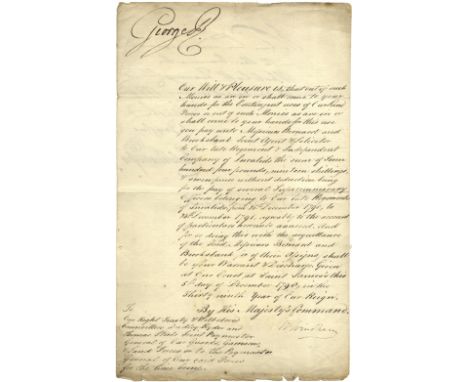 George R.
Our Will & Pleasure is, that out of such
Monies as are or shall come to your
hands for the Contingent uses of Our Land
Forces or out of such Monies as are or
shall come to your hands for this use
you pay unto Messieurs Bernard and
Joint Agent & Solicitor
to Our late Regiment & Independent
Company of Invalids the sum of Four
hundred four pounds, nineteen shillings,
& pence without deduction being
for the pay of several Supernumerary
Officers belonging to Our late Regiments
of Invalids, from December 1790, to
24 December 1791, agreeably to the account
of particulars hereunto annexed. And
for so doing this with the acquittance
of the said Messieurs Bernard and
or of their Assigns, shall
be your Warrant & Discharge. Given
at Our Court at Saint James's this
5th day of December 1798, in the
Thirty ninth Year of Our Reign.
By His Majesty's Command.
To
Our Right Trusty & Well beloved
Councillor Dudley Ryder and
Thomas Steele Joint Paymaster
General of Our Guards Garrisons
& Land Forces or to the Paymaster
General of Our said Forces
for the time being.